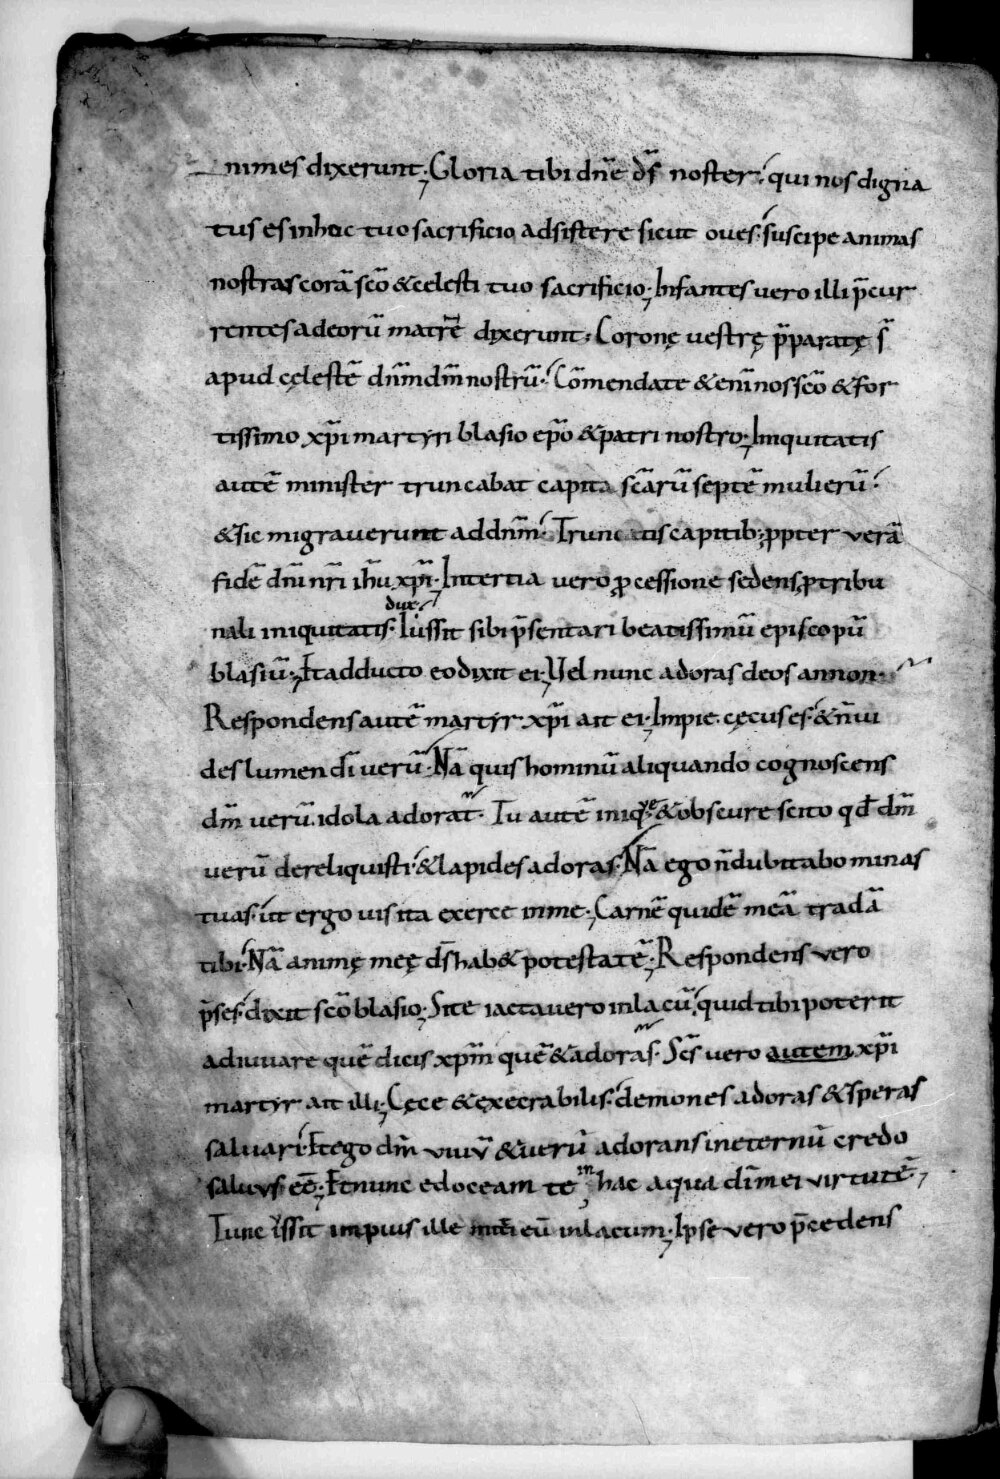 nimes dixerunt; Gloria tibi dn̄e d̄s noster; qui nos digna
tus es in hoc tuo sacrificio adsistere sicut oues; suscipe animas
nostras corā sc̄o & celesti tuo sacrificio; Infantes uero illi p̄cur
rentes ad eorū matrē dixerunt; Coronę uestrę p̄paratę s̄
apud cęlestē dn̄m dm̄ nostrū; Cōmendate & enī nos sc̄o & for
tissimo xp̄i martyri blasio ep̄o & patri nostro; Iniquitatis
autē minister truncabat capita sc̄arū septē mulierū;
& sic migrauerunt ad dn̄m; Truncatis capitib; ꝓpter verā
fidē dn̄i nr̄i ih̄u xp̄i; In tertia uero ꝓcessione sedens ꝓ tribu
nali iniquitatis dux; Iussit sibi p̄sentari beatissimū episcopū
blasiū; Et adducto eo dixit ei; Vel nunc adoras deos an non;
Respondens autē martyr xp̄i ait ei; Impie cęcus es; & n̄ ui
des lumen dī uerū; Nā quis hominū aliquando cognoscens
dm̄ uerū. idola adorat̄; Tu autē iniquę & obscure scito qd̄ dm̄
uerū dereliquisti; & lapides adoras; Nā ego n̄ dubitabo minas
tuas; ut ergo uis ita exerce in me; Carnē quidē meā tradā
tibi; Nā animę meę d̄s hab& potestatē; Respondens vero
p̄ses; dixit sc̄o blasio; Si te iactauero in lacū; quid tibi poterit
adiuuare quē dicis xp̄m quē & adoras; Sc̄s uero autem xp̄i
martyr ait illi; Cęce & execrabilis; demones adoras & speras
saluari; Et ego dm̄ uiuū & uerū adorans in eternū credo
saluus eē; Et nunc edoceam te in hac aqua dī mei virtutē;
Tunc iussit impius ille mitti eū in lacum; Ipse vero p̄cedens